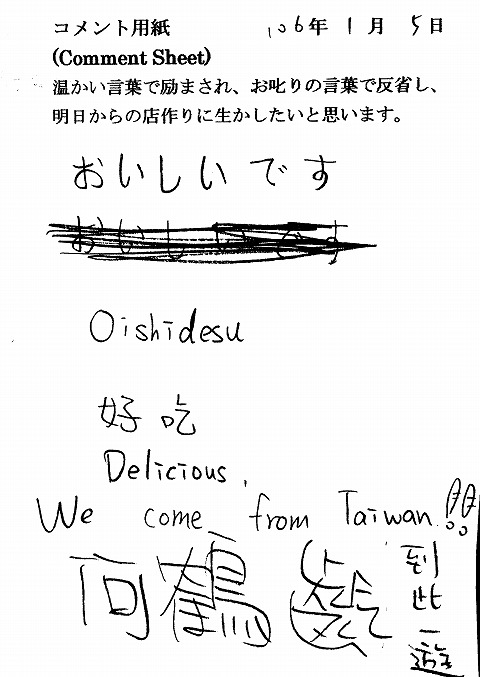 コメント用紙 106年 1月 5日
(Comment Sheet)
温かい言葉で励まされ、お叱りの言葉で反省し、
明日からの店作りに生かしたいと思います。
おいしいです
Oishidesu
好吃
Delicious.
We come from Taiwan!!
何鶴
到此一遊